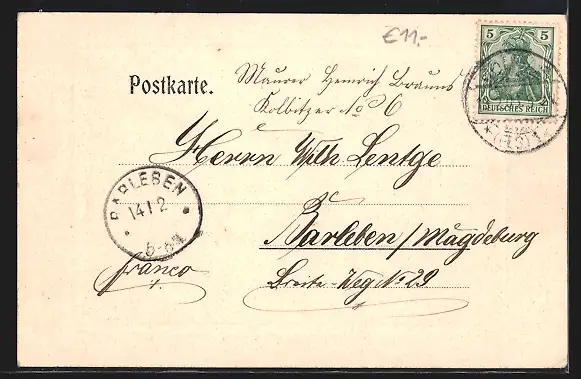 €11.-
5 5
DEUTSCHES REICH
Postkarte.
Maurer Heinrich Brauns
Kolbitzer No 6
Herrn Wilh. Lentge
in
Barleben/Magdeburg
Breite-Weg No 29
franco
BARLEBEN
14 1 2